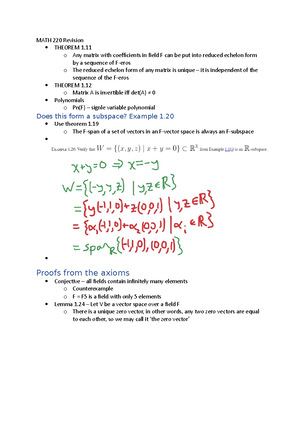 MATH 220 Revision
• THEOREM 1.11
o Any matrix with coefficients in field F can be put into reduced echelon form
by a sequence of F-eros
o The reduced echelon form of any matrix is unique – it is independent of the
sequence of the F-eros
• THEOREM 1.12
o Matrix A is invertible iff det(A) ≠ 0
• Polynomials
o Pn(F) – signle variable polynomial
Does this form a subspace? Example 1.20
• Use theorem 1.19
o The F-span of a set of vectors in an F-vector space is always an F-subspace
•
Example 1.20. Verify that W = {(x, y, z) | x + y = 0} ⊂ ℝ³ from Example 1.18(i) is an ℝ-subspace.
x+y=0 ⇒ x=-y
W={(-y,y,z) | y,z∈ℝ}
={y(-1,1,0)+z(0,0,1) | y,z∈ℝ}
={α₁(-1,1,0)+α₂(0,0,1) | αᵢ∈ℝ}
=span_ℝ{(-1,1,0),(0,0,1)}
•
Proofs from the axioms
• Conjective – all fields contain infinitely many elements
o Counterexample
o F = F5 is a field with only 5 elements
• Lemma 1.24 – Let V be a vector space over a field F
o There is a unique zero vector, in other words, any two zero vectors are equal
to each other, so we may call it 'the zero vector'